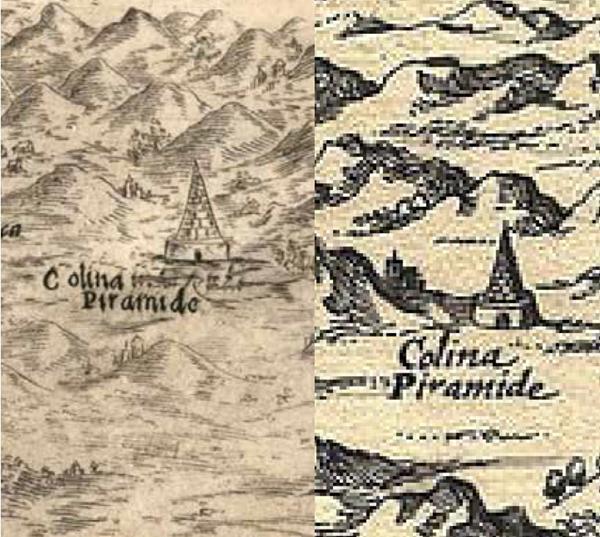 Colina
Piramide
Colina
Piramide